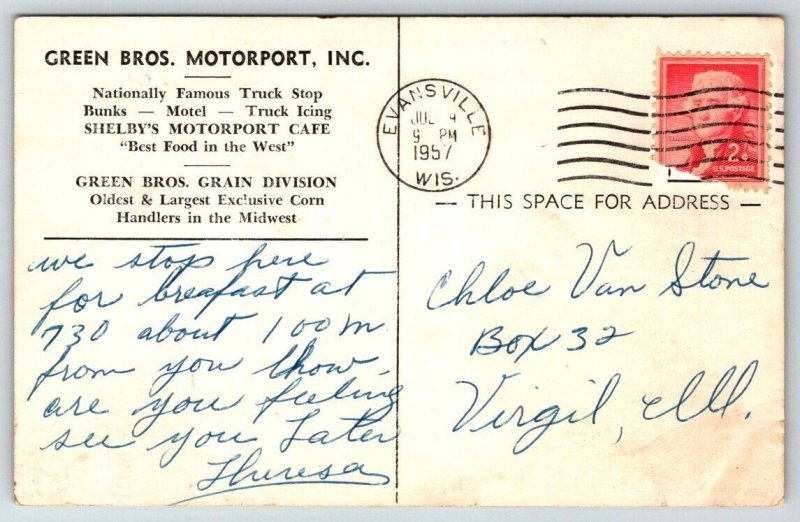 GREEN BROS. MOTORPORT, INC.
Nationally Famous Truck Stop
Bunks — Motel — Truck Icing
SHELBY'S MOTORPORT CAFE
"Best Food in the West"
GREEN BROS. GRAIN DIVISION
Oldest & Largest Exclusive Corn
Handlers in the Midwest
we stop here
for breafast at
730 about 100 m
from you Chow
are you feeling
see you Later
Theresa
EVANSVILLE
JUL 9
9 PM
1957
WIS.
2¢
U.S. POSTAGE
— THIS SPACE FOR ADDRESS —
Chloe Van Stone
Box 32
Virgil, Ill.